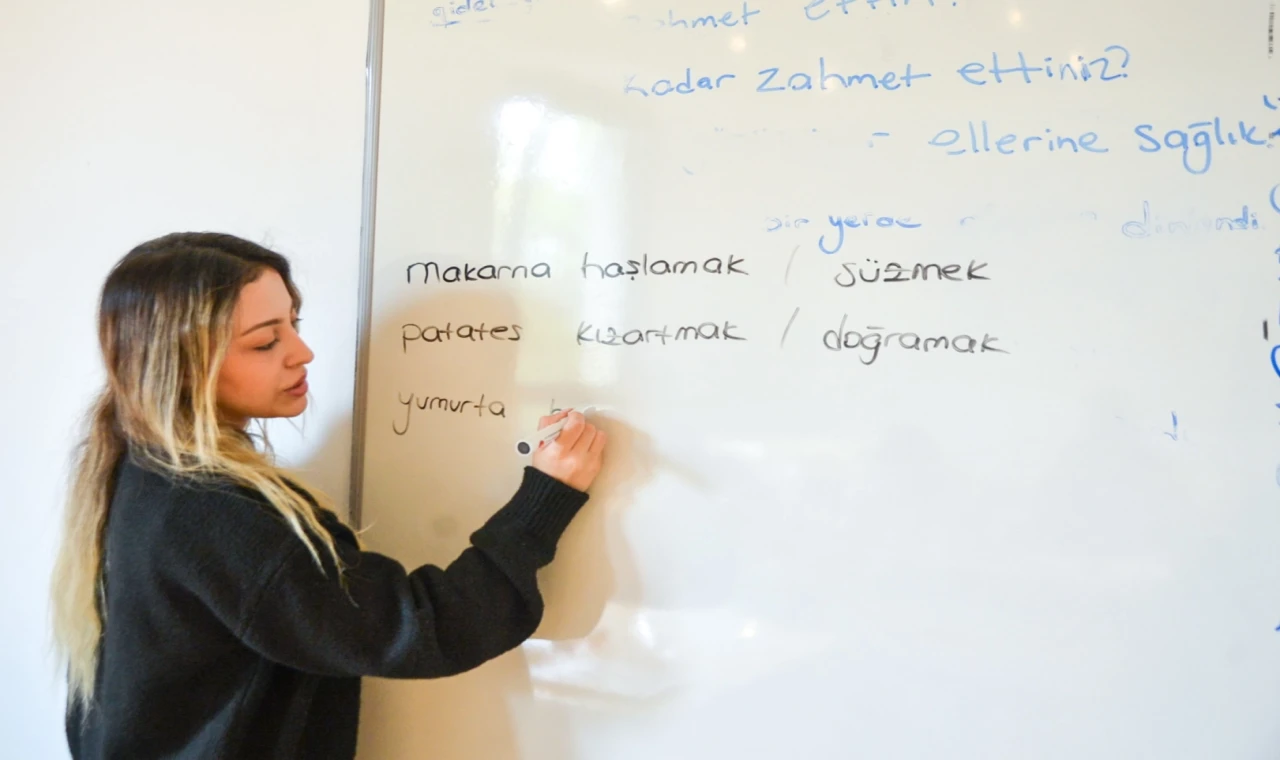 gider
zahmet ettin?
kadar zahmet ettiniz?
- ellerine sağlık.
bir yerde
makarna haşlamak / süzmek
patates kızartmak / doğramak
yumurta